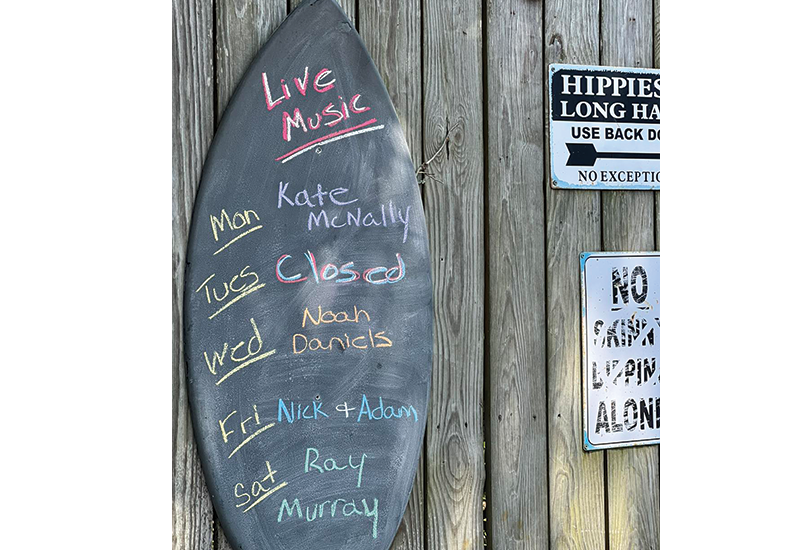 Live
Music
Mon Kate
McNally
Tues Closed
Wed Noah
Daniels
Fri Nick & Adam
Sat Ray
Murray
HIPPIES
LONG HA
USE BACK DO
NO EXCEPTIO
NO
SKINNY
DIPPIN
ALONE